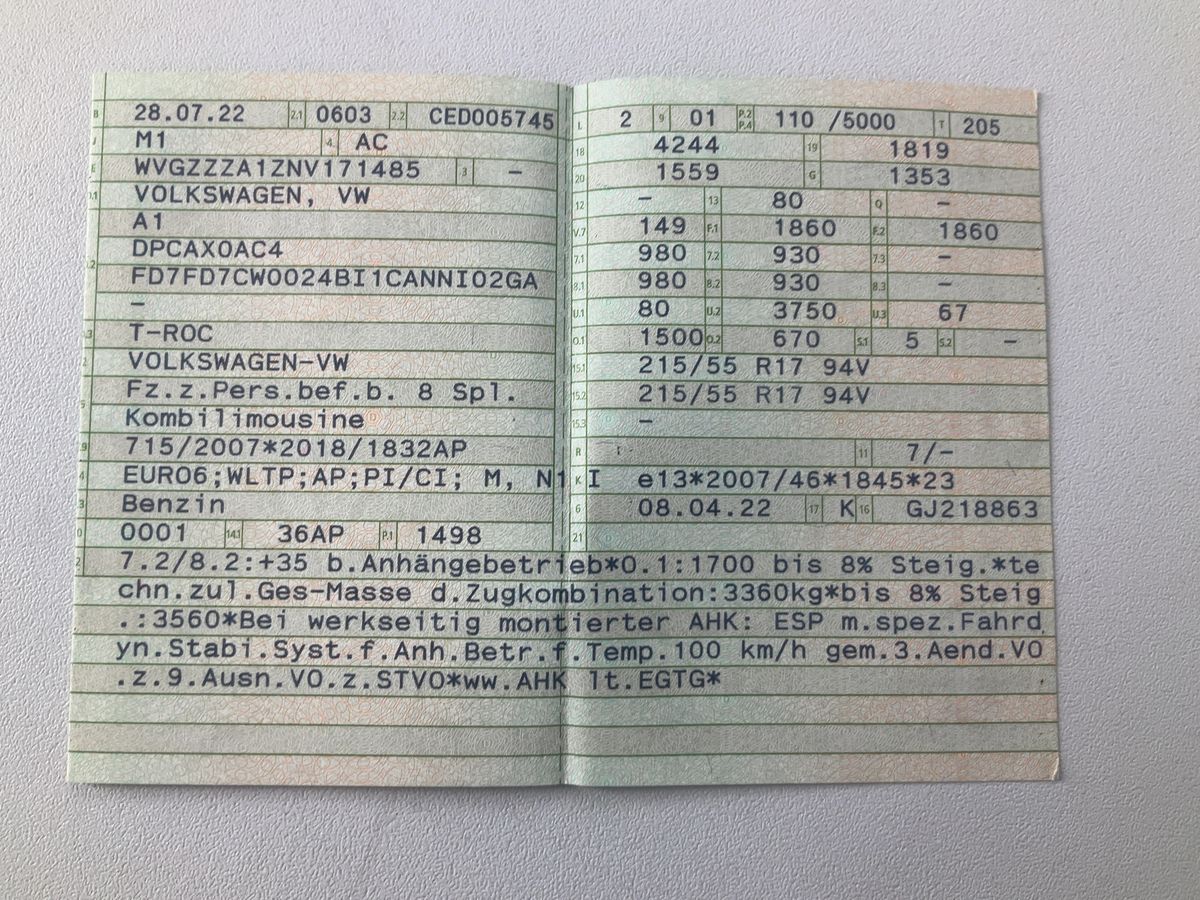 B 28.07.22 2.1 0603 2.2 CED005745
J M1 4 AC
E WVGZZZA1ZNV171485 3 –
D.1 VOLKSWAGEN, VW
A1
DPCAX0AC4
FD7FD7CW0024BI1CANNI02GA
–
T-ROC
2 VOLKSWAGEN-VW
Fz.z.Pers.bef.b. 8 Spl.
Kombilimousine
715/2007*2018/1832AP
EURO6;WLTP;AP;PI/CI; M, N1 I
Benzin
0001 14.1 36AP P.1 1498
L 2 9 01 P.2 P.4 110 /5000 T 205
18 4244 19 1819
20 1559 G 1353
12 – 13 80 Q –
V.7 149 F.1 1860 F.2 1860
7.1 980 7.2 930 7.3 –
8.1 980 8.2 930 8.3 –
U.1 80 U.2 3750 U.3 67
O.1 1500 O.2 670 S.1 5 S.2 –
15.1 215/55 R17 94V
15.2 215/55 R17 94V
15.3 –
R 11 7/–
K e13*2007/46*1845*23
6 08.04.22 17 K 16 GJ218863
21
7.2/8.2:+35 b.Anhängebetrieb*0.1:1700 bis 8% Steig.*te
chn.zul.Ges-Masse d.Zugkombination:3360kg*bis 8% Steig
.:3560*Bei werkseitig montierter AHK: ESP m.spez.Fahrd
yn.Stabi.Syst.f.Anh.Betr.f.Temp.100 km/h gem.3.Aend.VO
.z.9.Ausn.VO.z.STVO*ww.AHK lt.EGTG*